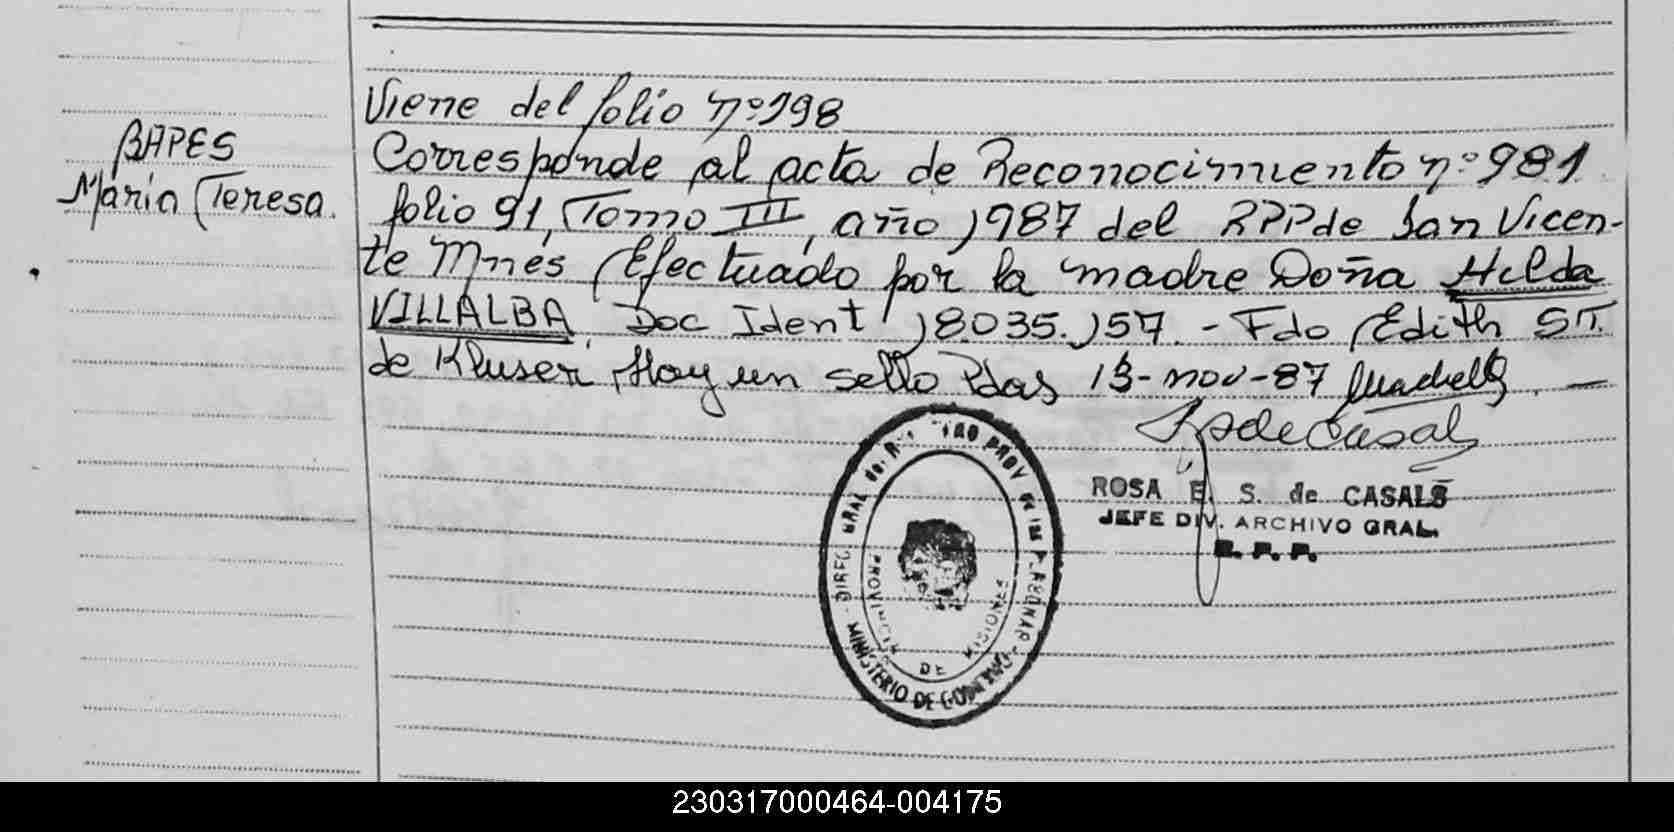 BAPES
Maria Teresa.
Viene del folio nº 198
Corresponde al acta de Reconocimiento nº 981
folio 91, Tomo III, año 1987 del RPP de San Vicen-
te Mnes Efectuado por la madre Doña Hilda
VILLALBA Doc Ident 18.035.157. - Fdo Edith ST.
de Kluser, Hay un sello Pdas 13-nov-87
ROSA E. S. de CASALS
JEFE DIV. ARCHIVO GRAL.
R. P. P.
DIREC. GRAL del PROV. de las PERSONAS
MINISTERIO DE GOBIERNO
PROVINCIA DE MISIONES
230317000464-004175